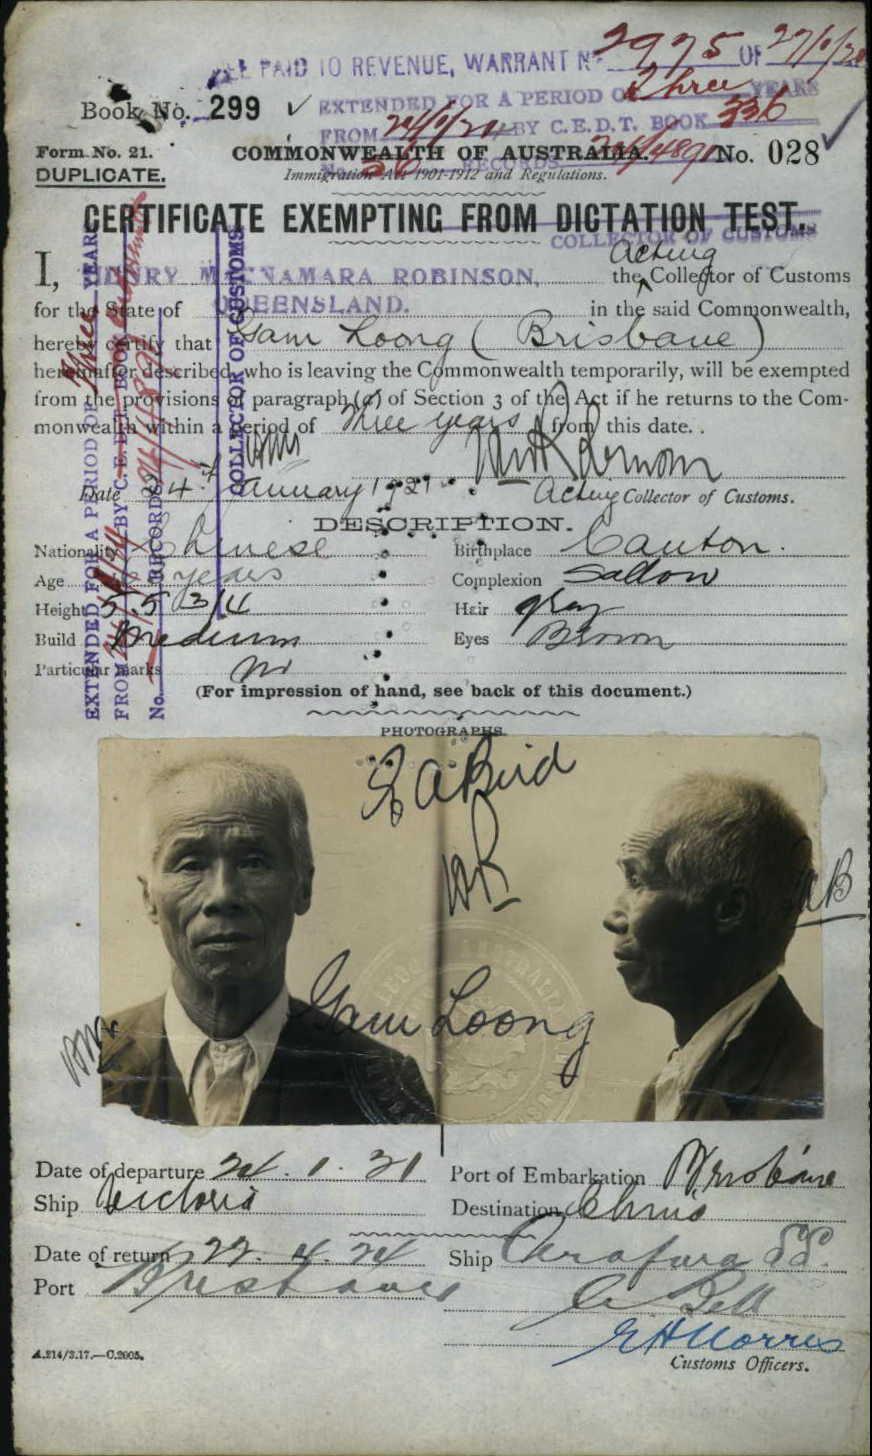 FEE PAID TO REVENUE, WARRANT No 2975 OF
Book No. 299
EXTENDED FOR A PERIOD OF Three YEARS
FROM BY C.E.D.T. BOOK 336
Form No. 21.
COMMONWEALTH OF AUSTRALIA. No. 028
RECORDS
DUPLICATE.
Immigration Act 1901-1912 and Regulations.
CERTIFICATE EXEMPTING FROM DICTATION TEST.
COLLECTOR OF CUSTOMS
I, HENRY McNAMARA ROBINSON, the Acting Collector of Customs
for the State of QUEENSLAND. in the said Commonwealth,
hereby certify that Gam Loong (Brisbane)
hereinafter described, who is leaving the Commonwealth temporarily, will be exempted
from the provisions of paragraph (a) of Section 3 of the Act if he returns to the Com-
monwealth within a period of Three years from this date.
Date 24 January 1921
Acting Collector of Customs.
EXTENDED FOR A PERIOD OF Three YEARS
FROM BY C.E.D.T. BOOK
No. RECORDS
COLLECTOR OF CUSTOMS
DESCRIPTION.
Nationality Chinese Birthplace Canton.
Age years Complexion Sallow
Height 5.5 3/4 Hair gray
Build Medium Eyes Brown
Particular marks
(For impression of hand, see back of this document.)
PHOTOGRAPHS.
S A Bird
Gam Loong
Date of departure 24.1.21 Port of Embarkation Brisbane
Ship Victoria Destination China
Date of return 22.4.24 Ship Arafura SS.
Port Brisbane
Bell
E H Norris
A.214/3.17.—C.2005. Customs Officers.